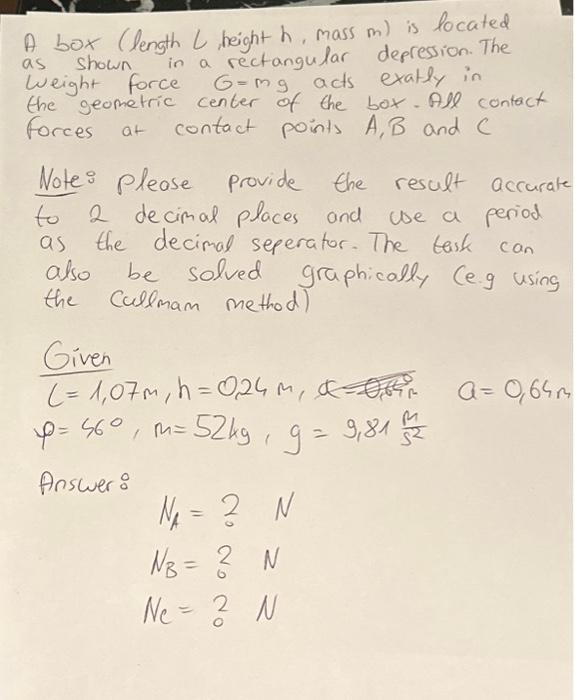 A box (length L, height h, mass m) is located
as shown in a rectangular depression. The
Weight force G=mg acts exatly in
the geometric center of the box. All contact
forces at contact points A,B and C
Note: please provide the result accurate
to 2 decimal places and use a period
as the decimal seperator. The task can
also be solved graphically (e.g using
the Cullmam method)
Given
L= 1,07m, h= 0,24 m, a= 0,64m
φ= 56°, m= 52kg, g = 9,81 m/s²
Answer:
N_A = ? N
N_B = ? N
N_C = ? N